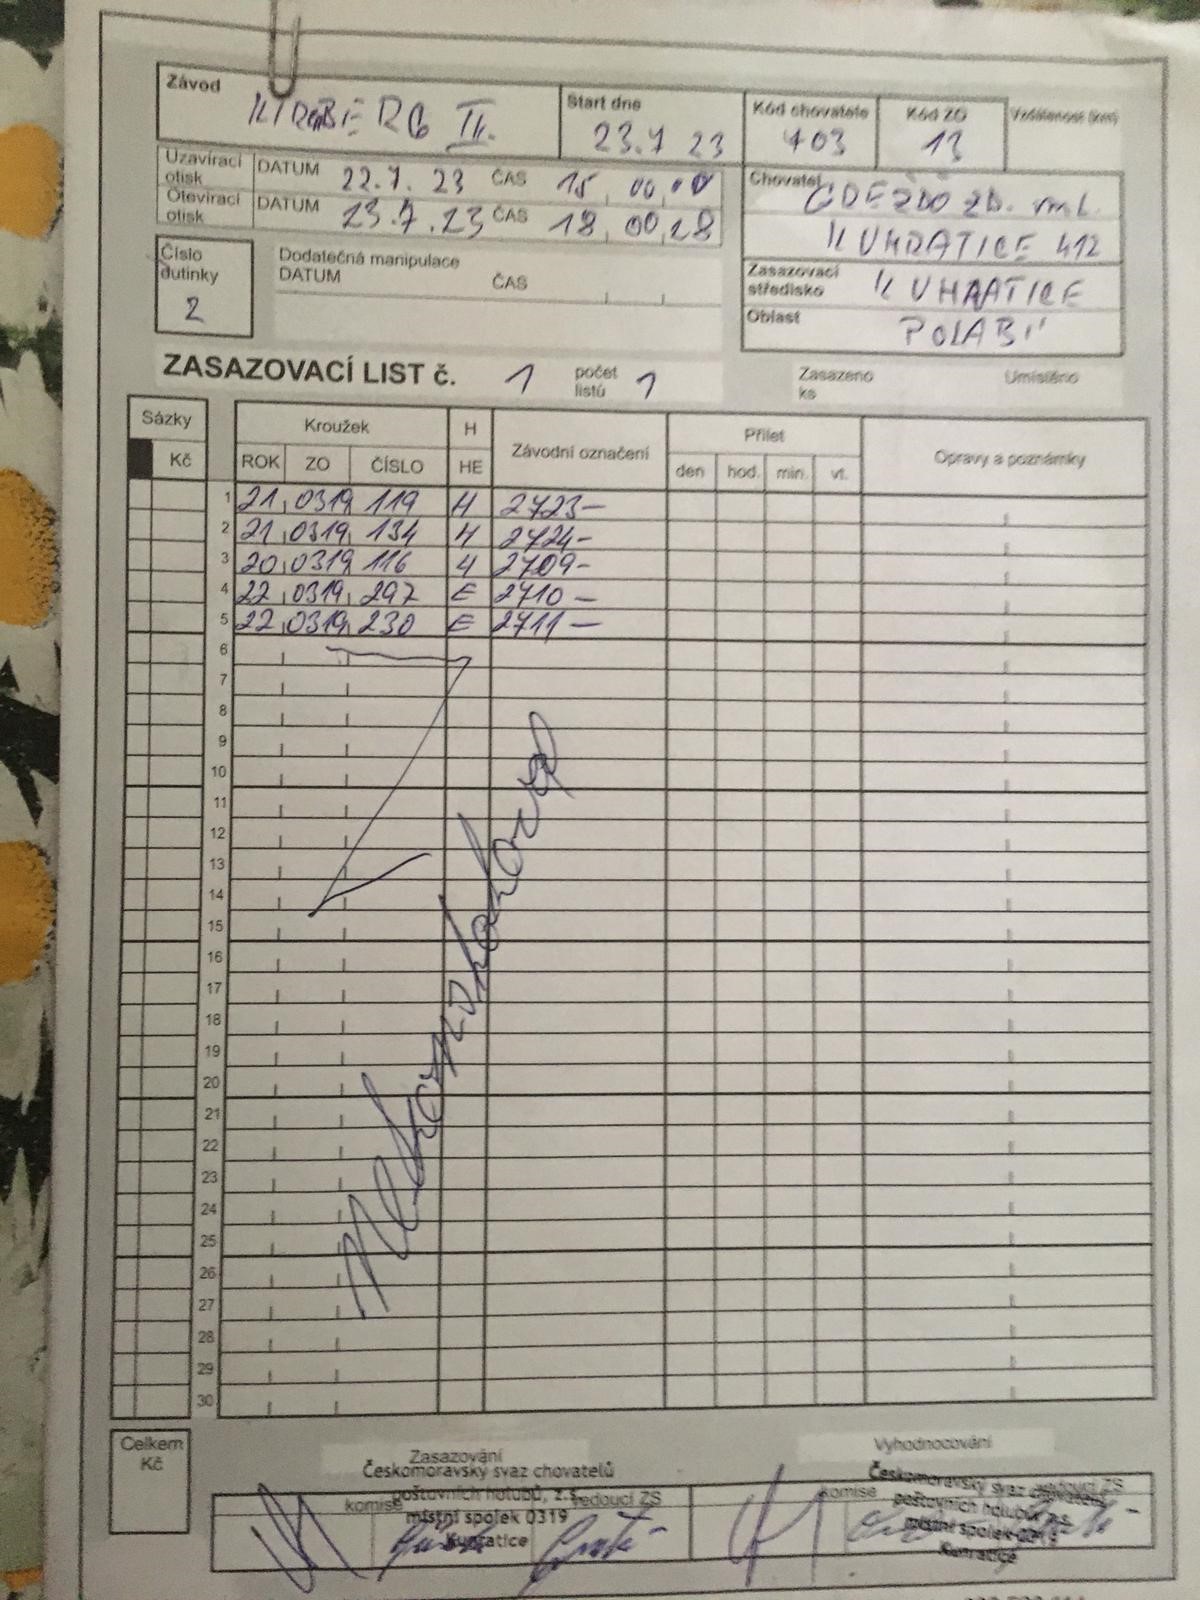 Závod
Start dne
Kód chovatele
Kód ZO
Vzdálenost (km)
II.
23.7 23
403
13
Uzavírací otisk DATUM 22.7. 23 ČAS 15 00
Otevírací otisk DATUM 23.7.23 ČAS 18 00 28
Chovatel
ml.
412
Zasazovací středisko
Oblast POLABÍ
Číslo dutinky
2
Dodatečná manipulace
DATUM ČAS
ZASAZOVACÍ LIST č. 1 počet listů 1
Zasazeno ks
Umístěno
Sázky
Kč
Kroužek
ROK ZO ČÍSLO
H
HE
Závodní označení
Přílet
den hod. min. vt.
Opravy a poznámky
1 21 0319 119 H 2723-
2 21 0319 134 H 2724-
3 20 0319 116 H 2709-
4 22 0319 297 E 2710-
5 22 0319 230 E 2711-
6
7
8
9
10
11
12
13
14
15
16
17
18
19
20
21
22
23
24
25
26
27
28
29
30
Celkem Kč
Zasazování
Českomoravský svaz chovatelů
poštovních holubů, z.s.
komise vedoucí ZS
místní spolek 0319
Kunratice
Vyhodnocování
Českomoravský svaz chovatelů
komise vedoucí ZS
poštovních holubů, z.s.
místní spolek 0319
Kunratice